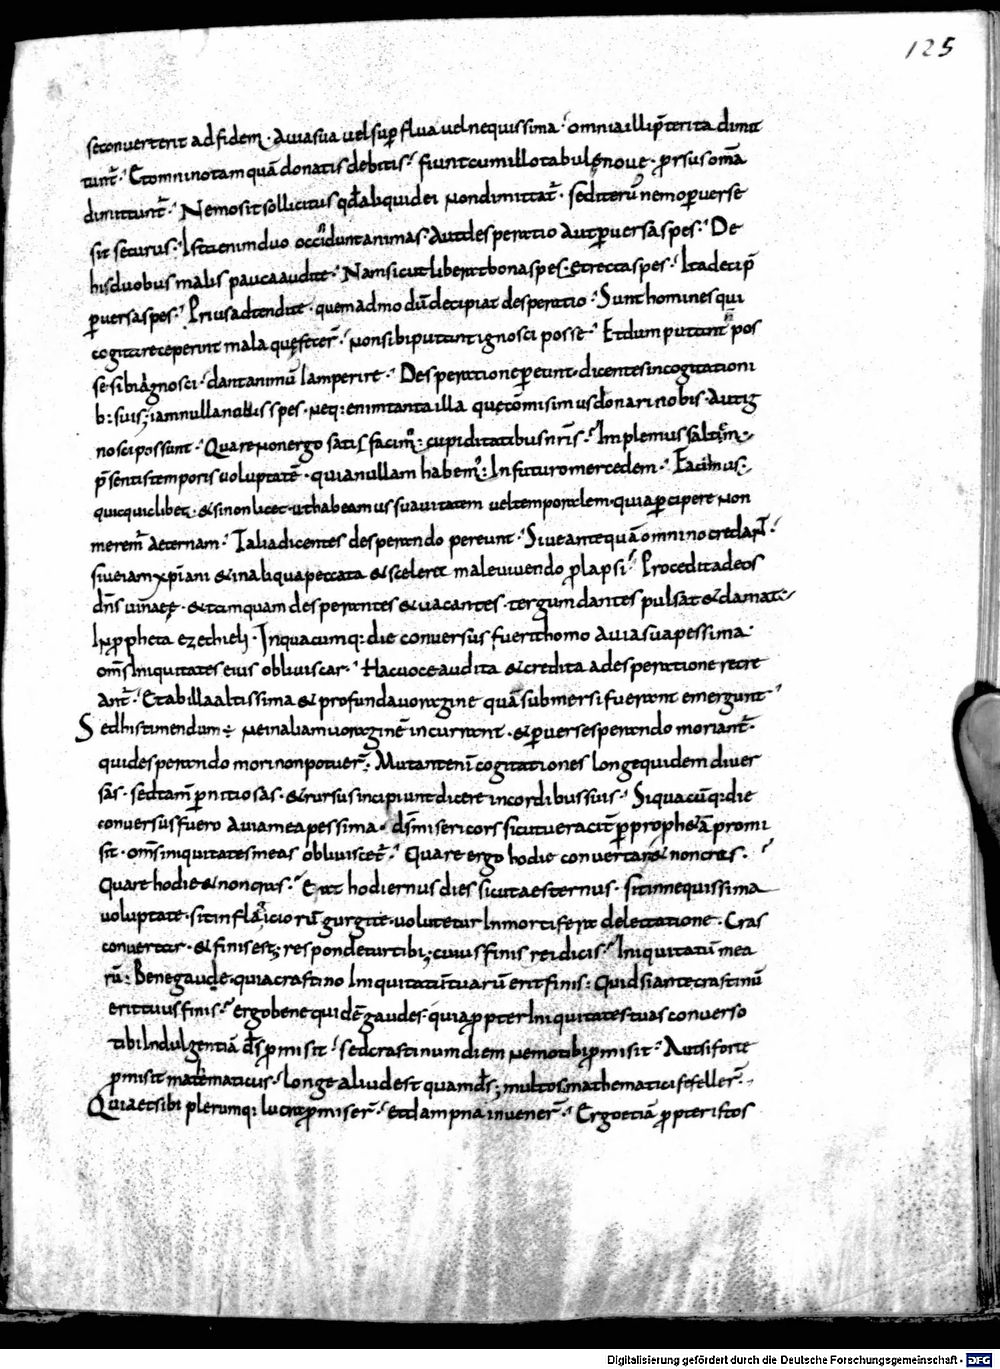 125
seconverterit ad fidem · A uia sua uel sup̄flua uel nequissima · omnia illi p̄terita dimit
tunt̄ · Et omnino tamquā donatis debitis · fiunt cum illo tabulę nouę · p̱rsus om̄a
dimittunt̄ · Nemo sit sollicitus qd̄ aliquid ei non dimittat̄ · sed iterū nemo p̱uerse
sit securus · Ista enim duo occidunt animas · Aut desperatio Aut p̱uersa spes · De
his duobus malis pauca audite · Nam sicut liberat bona spes · et recta spes · Ita decip̄
p̱uersa spes · Prius adtendite · quemadmodū decipiat desperatio · Sunt homines qui
cogitare ceperint mala quę fecer̄ · non sibi putant ignosci posse · Et dum putant n̄ pos
se sibi ignosci · dant animū iam perire · Desperatione p̱eunt · dicentes in cogitationi
b: suis; iam nulla nobis spes · neq: enim tanta illa quę cōmisimus donari nobis · Aut ig
nosci possunt · Quare non ergo satis facim̄: cupiditatibus nr̄is · Implemus saltem
p̄sentis temporis uoluptatē · quia nullam habem̄: In futuro mercedem · Faciamus
quicquid libet · & si non licet · ut habeamus suauitatem uel temporalem · quia p̱cipere non
merem̄ Aeternam · Talia dicentes desperando pereunt · Siue antequā omnino credant ·
siue iam xp̄iani & in aliqua peccata & scelera male uiuendo p̱lapsi · Procedit ad eos
dn̄s uineaę · & tamquam desperantes & uacantes · tergum dantes pulsat & clamat
In p̱pheta ezechiel · In quacumq: die conuersus fuerit homo A uia sua pessima ·
om̄s Iniquitates eius obliuiscar · Hac uoce audita & credita a desperatione recre
ant̄ · Et ab illa altissima & profunda uoragine quā submersi fuerant emergunt ·
Sed his timendum ÷ ne in aliam uoraginē incurrant · & p̱uerse sperando moriant̄ ·
qui desperando mori non potuer̄ · Mutant enī cogitationes longe quidem diuer
sas · sed tam̄ p̱nitiosas · & rursus incipiunt dicere in cordibus suis · Si quacūq: die
conuersus fuero A uia mea pessima · ds̄ misericors sicut ueracit̄ p̱ propheTā promi
sit · om̄s iniquitates meas obliuiscet̄ · Quare ergo hodie conuertar & non cras ·
Quare hodie & non cras · Erat hodiernus dies sicut aesternus · sit in nequissima
uoluptate · sit in flagitiorū gurgite · uolutetur In mortifera delectatione · Cras
conuertar · & finis est; respondetur tibi; cuius finis rei dicis · Iniquitatū mea
rū: Bene gaude · quia crastino Iniquitatū tuarū erit finis: Quid si ante crastinū
erit tuus finis · ergo bene quidē gaudes · quia p̱pter Iniquitates tuas conuerso
tibi Indulgentiā ds̄ p̱misit · sed crastinum diem nemo tibi p̱misit · Aut si forte
p̱misit mathematicus · Longe aliud est quam ds̄; multos mathematici fefeller̄ ·
Quia et sibi plerumq: lucra p̱miser̄ · et dampna inuener̄ · Ergo etiā p̱pter istos
Digitalisierung gefördert durch die Deutsche Forschungsgemeinschaft - DFG